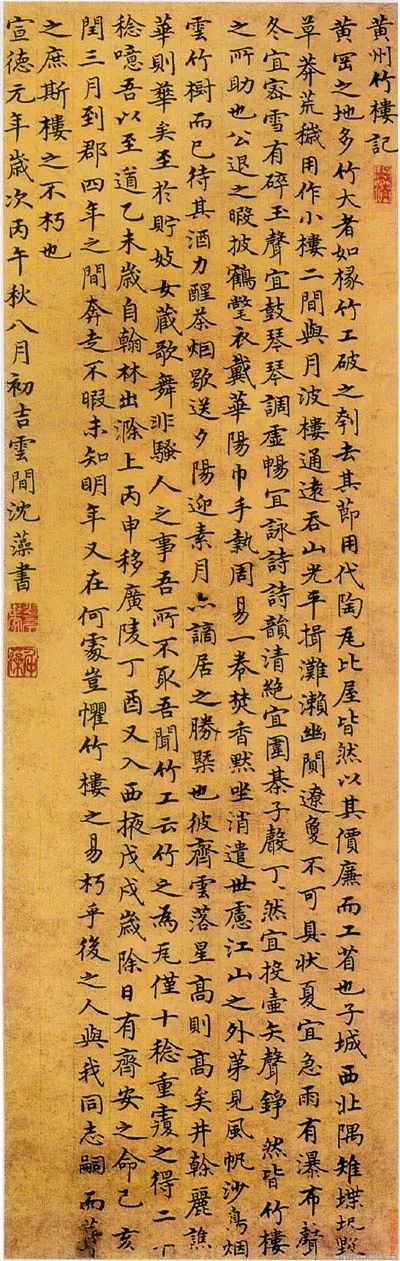 黃州竹樓記
黃岡之地多竹大者如椽竹工破之刳去其節用代陶瓦比屋皆然以其價廉而工省也子城西北隅雉堞圮毀
草莽荒穢用作小樓二間與月波樓通遠吞山光平挹灘瀨幽闃遼夐不可具狀夏宜急雨有瀑布聲
冬宜密雪有碎玉聲宜鼓琴琴調虛暢宜詠詩詩韻清絕宜圍棊子聲丁丶然宜投壺矢聲錚丶然皆竹樓
之所助也公退之暇披鶴氅衣戴華陽巾手執周易一卷焚香默坐消遣世慮江山之外第見風帆沙鳥烟
雲竹樹而已待其酒力醒茶烟歇送夕陽迎素月亦謫居之勝槩也彼齊雲落星高則高矣井幹麗譙
華則華矣至於貯妓女藏歌舞非騷人之事吾所不取吾聞竹工云竹之為瓦僅十稔重覆之得二十
稔噫吾以至道乙未歲自翰林出滁上丙申移廣陵丁酉又入西掖戊戌歲除日有齊安之命己亥
閏三月到郡四年之間奔走不暇未知明年又在何處豈懼竹樓之易朽乎後之人與我同志嗣而葺
之庶斯樓之不朽也
宣德元年歲次丙午秋八月初吉雲間沈藻書